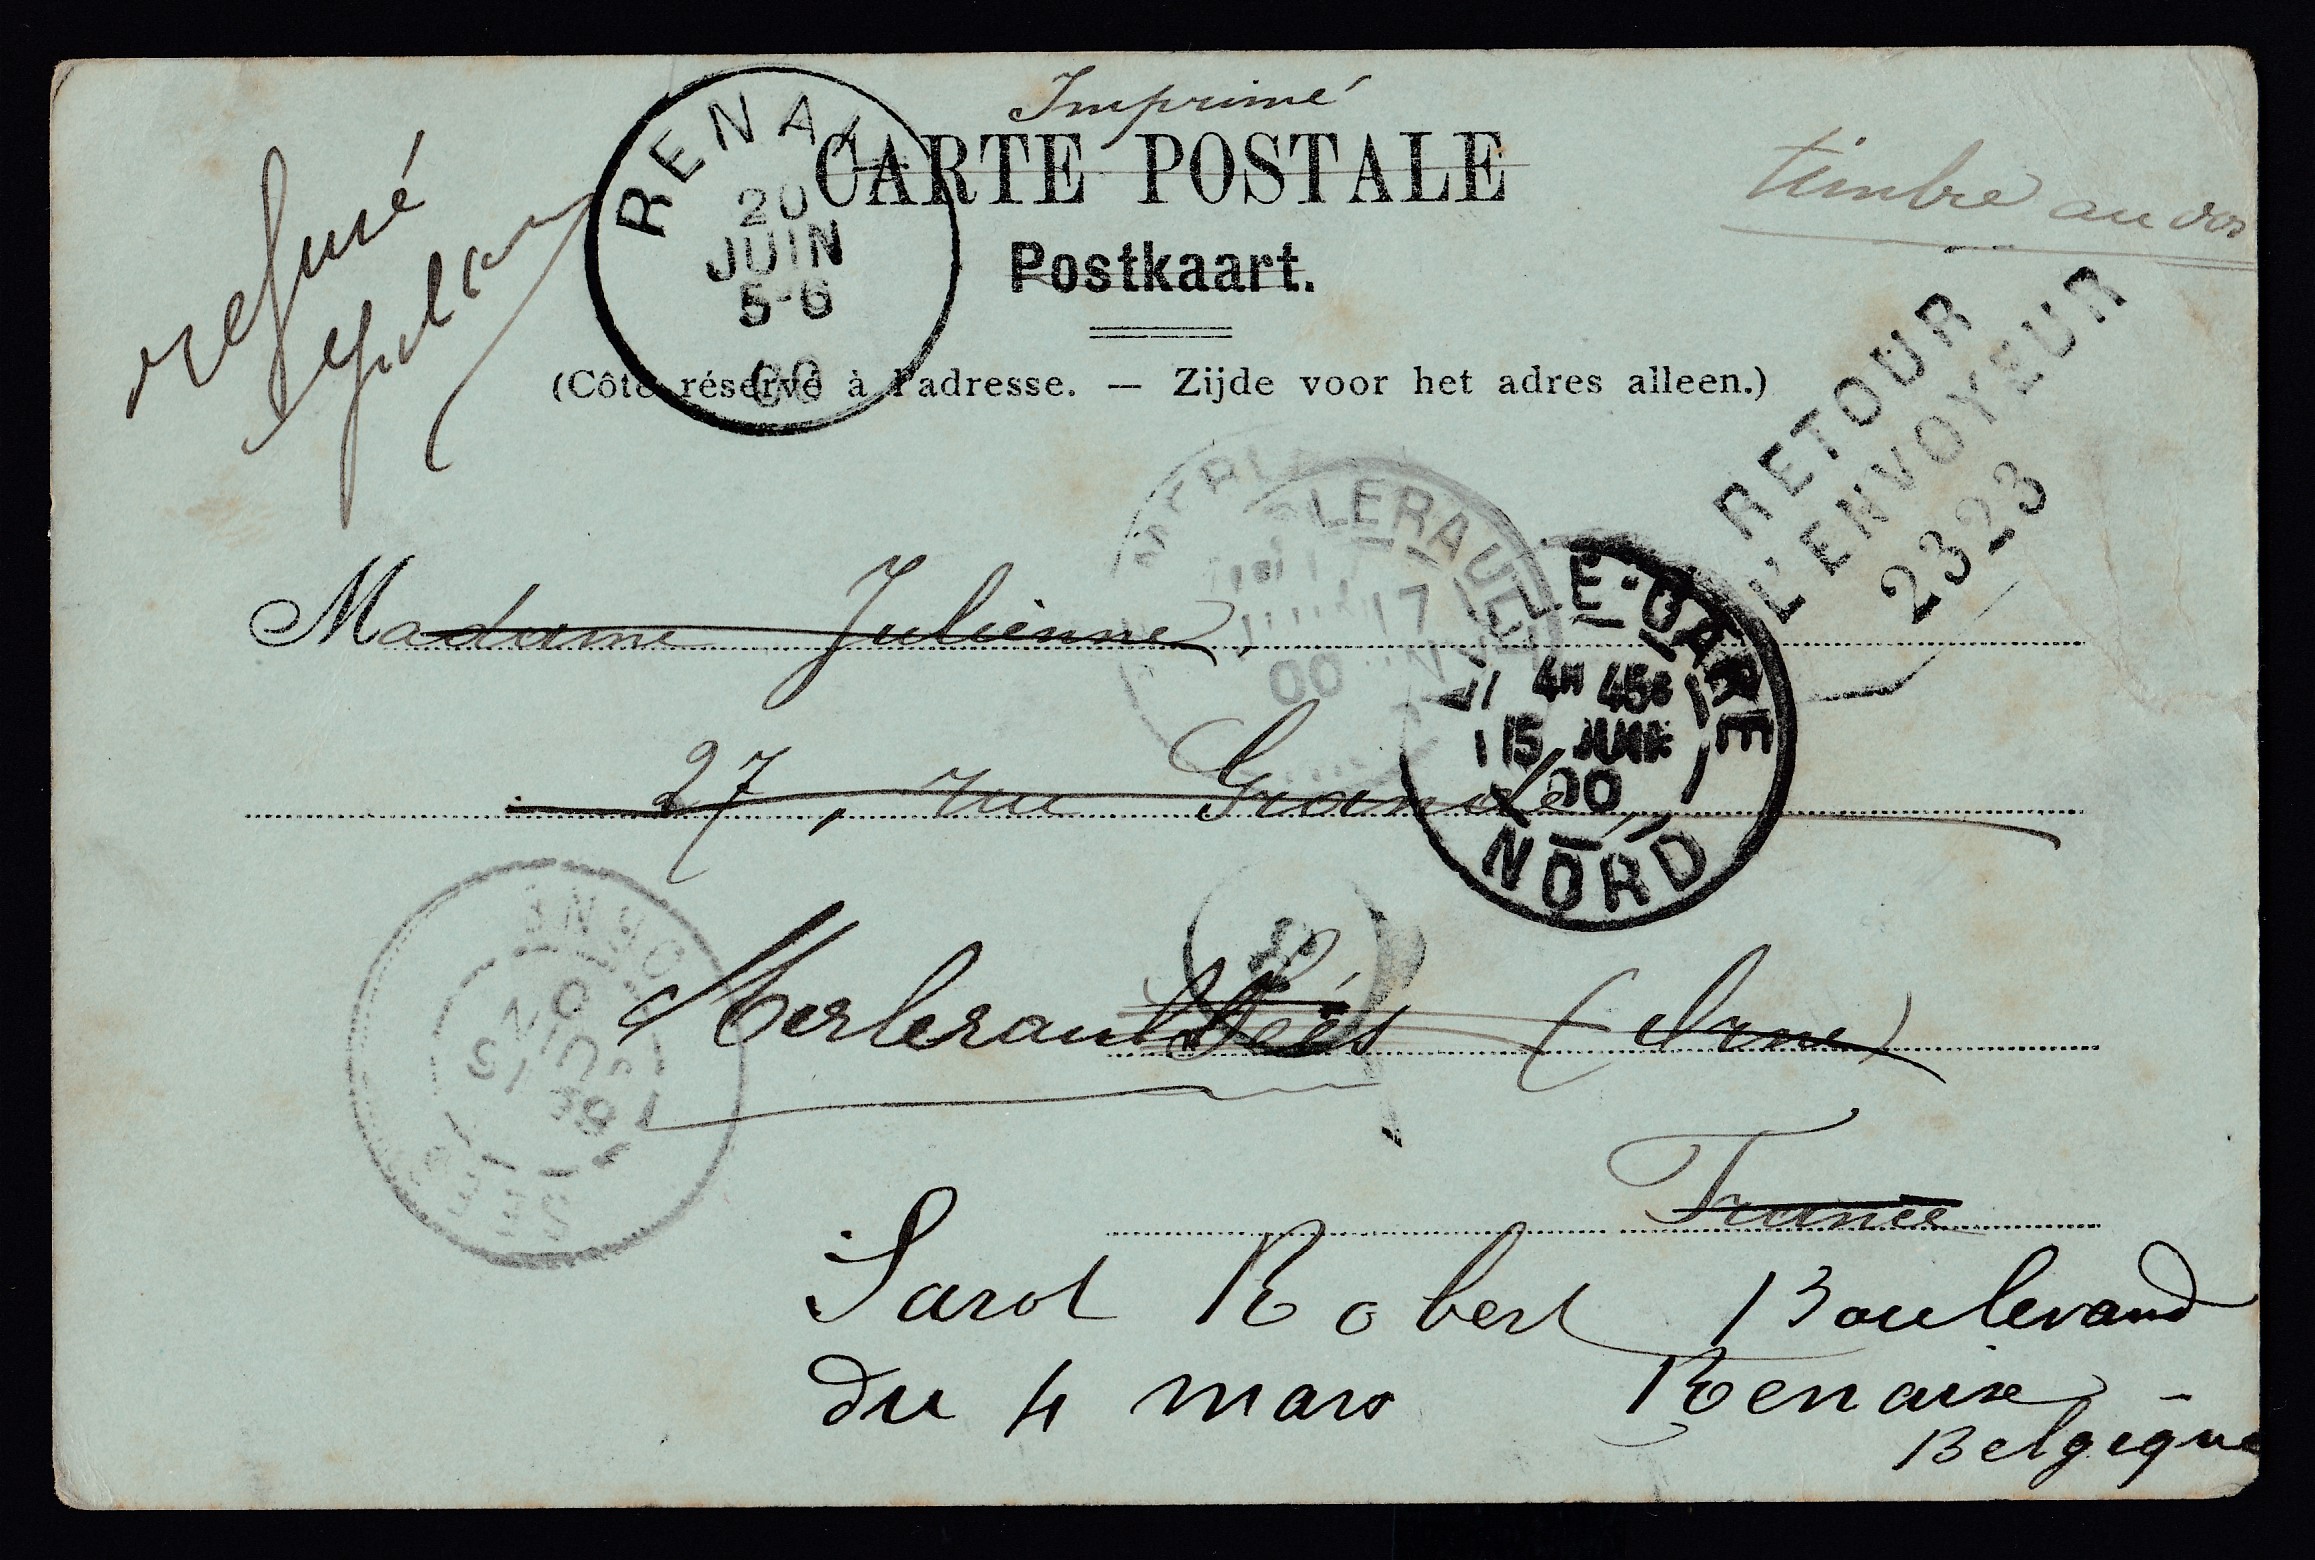 Imprimé
CARTE POSTALE
Postkaart.
(Côté réservé à l'adresse. — Zijde voor het adres alleen.)
timbre au dos
refusé
RENAI
20
JUIN
5-6
00
RETOUR
L'ENVOYEUR
2323
LERAU
17
00
LLE-GARE
4H 45S
15 JUIN
00
NORD
Madame Julienne,
27, rue Grande,
Merlerault Sées (Orne)
France
ORNE
SEES
Sarot Robert Boulevard
du 4 mars Renaix -
Belgique